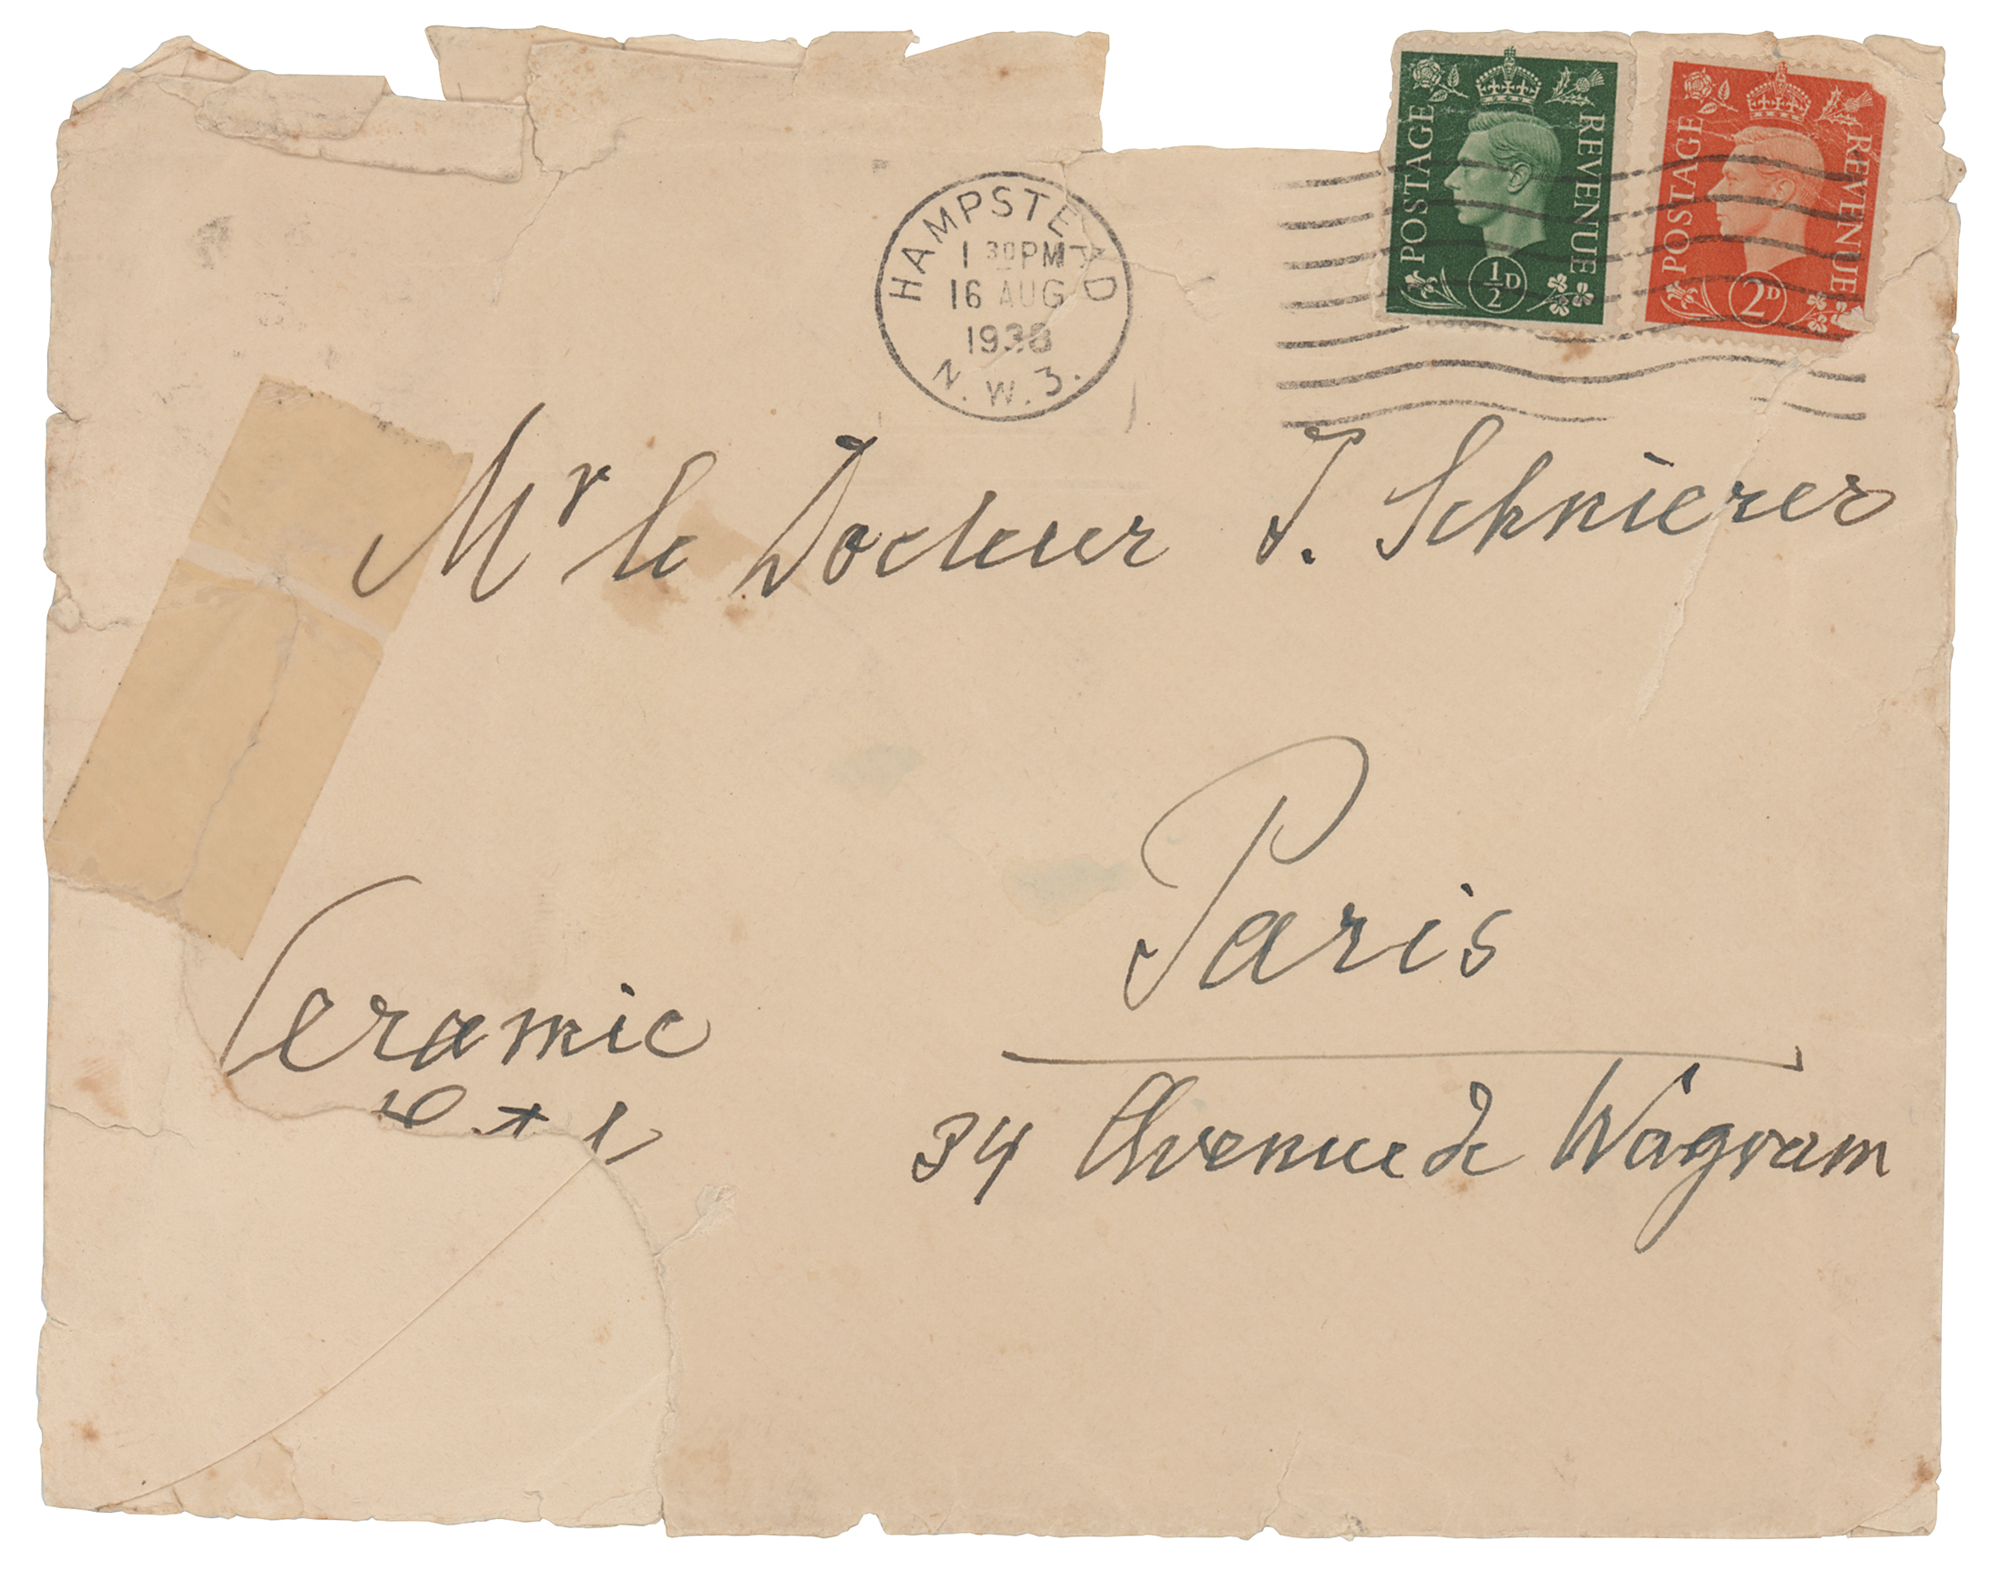 HAMPSTEAD
1 30 PM
16 AUG
1938
N.W.3.
POSTAGE REVENUE
½D
POSTAGE REVENUE
2D
Mr le Docteur I. Schnierer
Paris
Ceramic
34 Avenue de Wagram